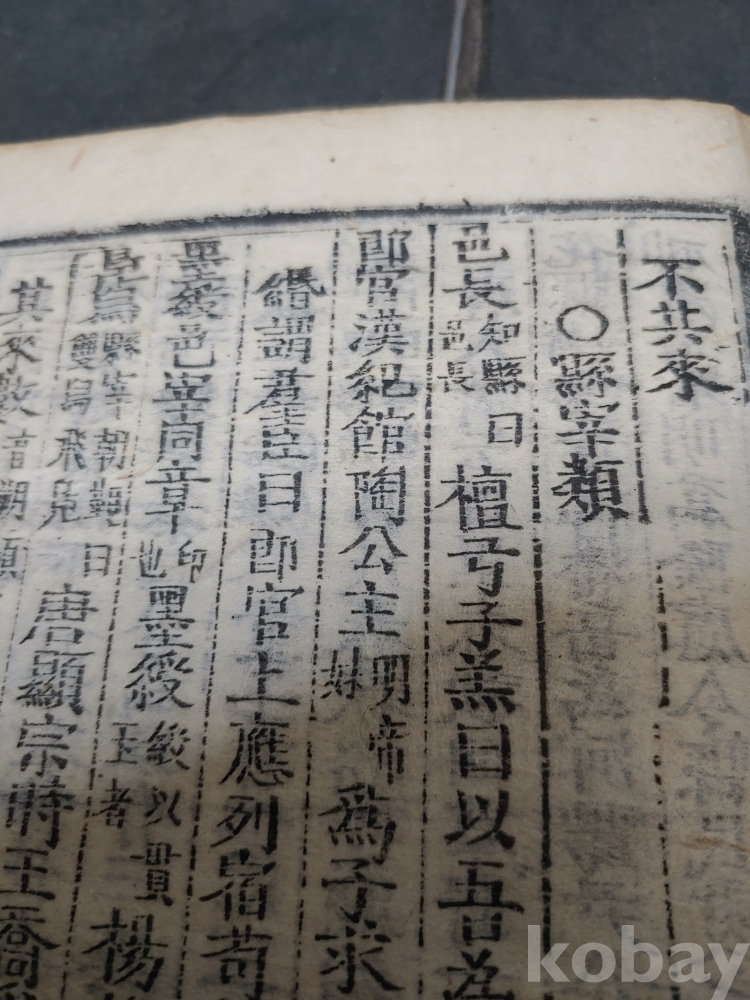 不共來
○縣宰類
邑長 知縣曰邑長 檀弓子羔曰以吾為
郎官漢紀館陶公主 明帝妹 為子求
緡謂君臣曰郎官上應列宿苟
墨綬邑宰同章 印也 墨綬 綬以貫玉者 楊
鳧舄縣宰朝覲曰雙鳧飛舄 唐顯宗時王喬
其來數 音朔 頻
kobay